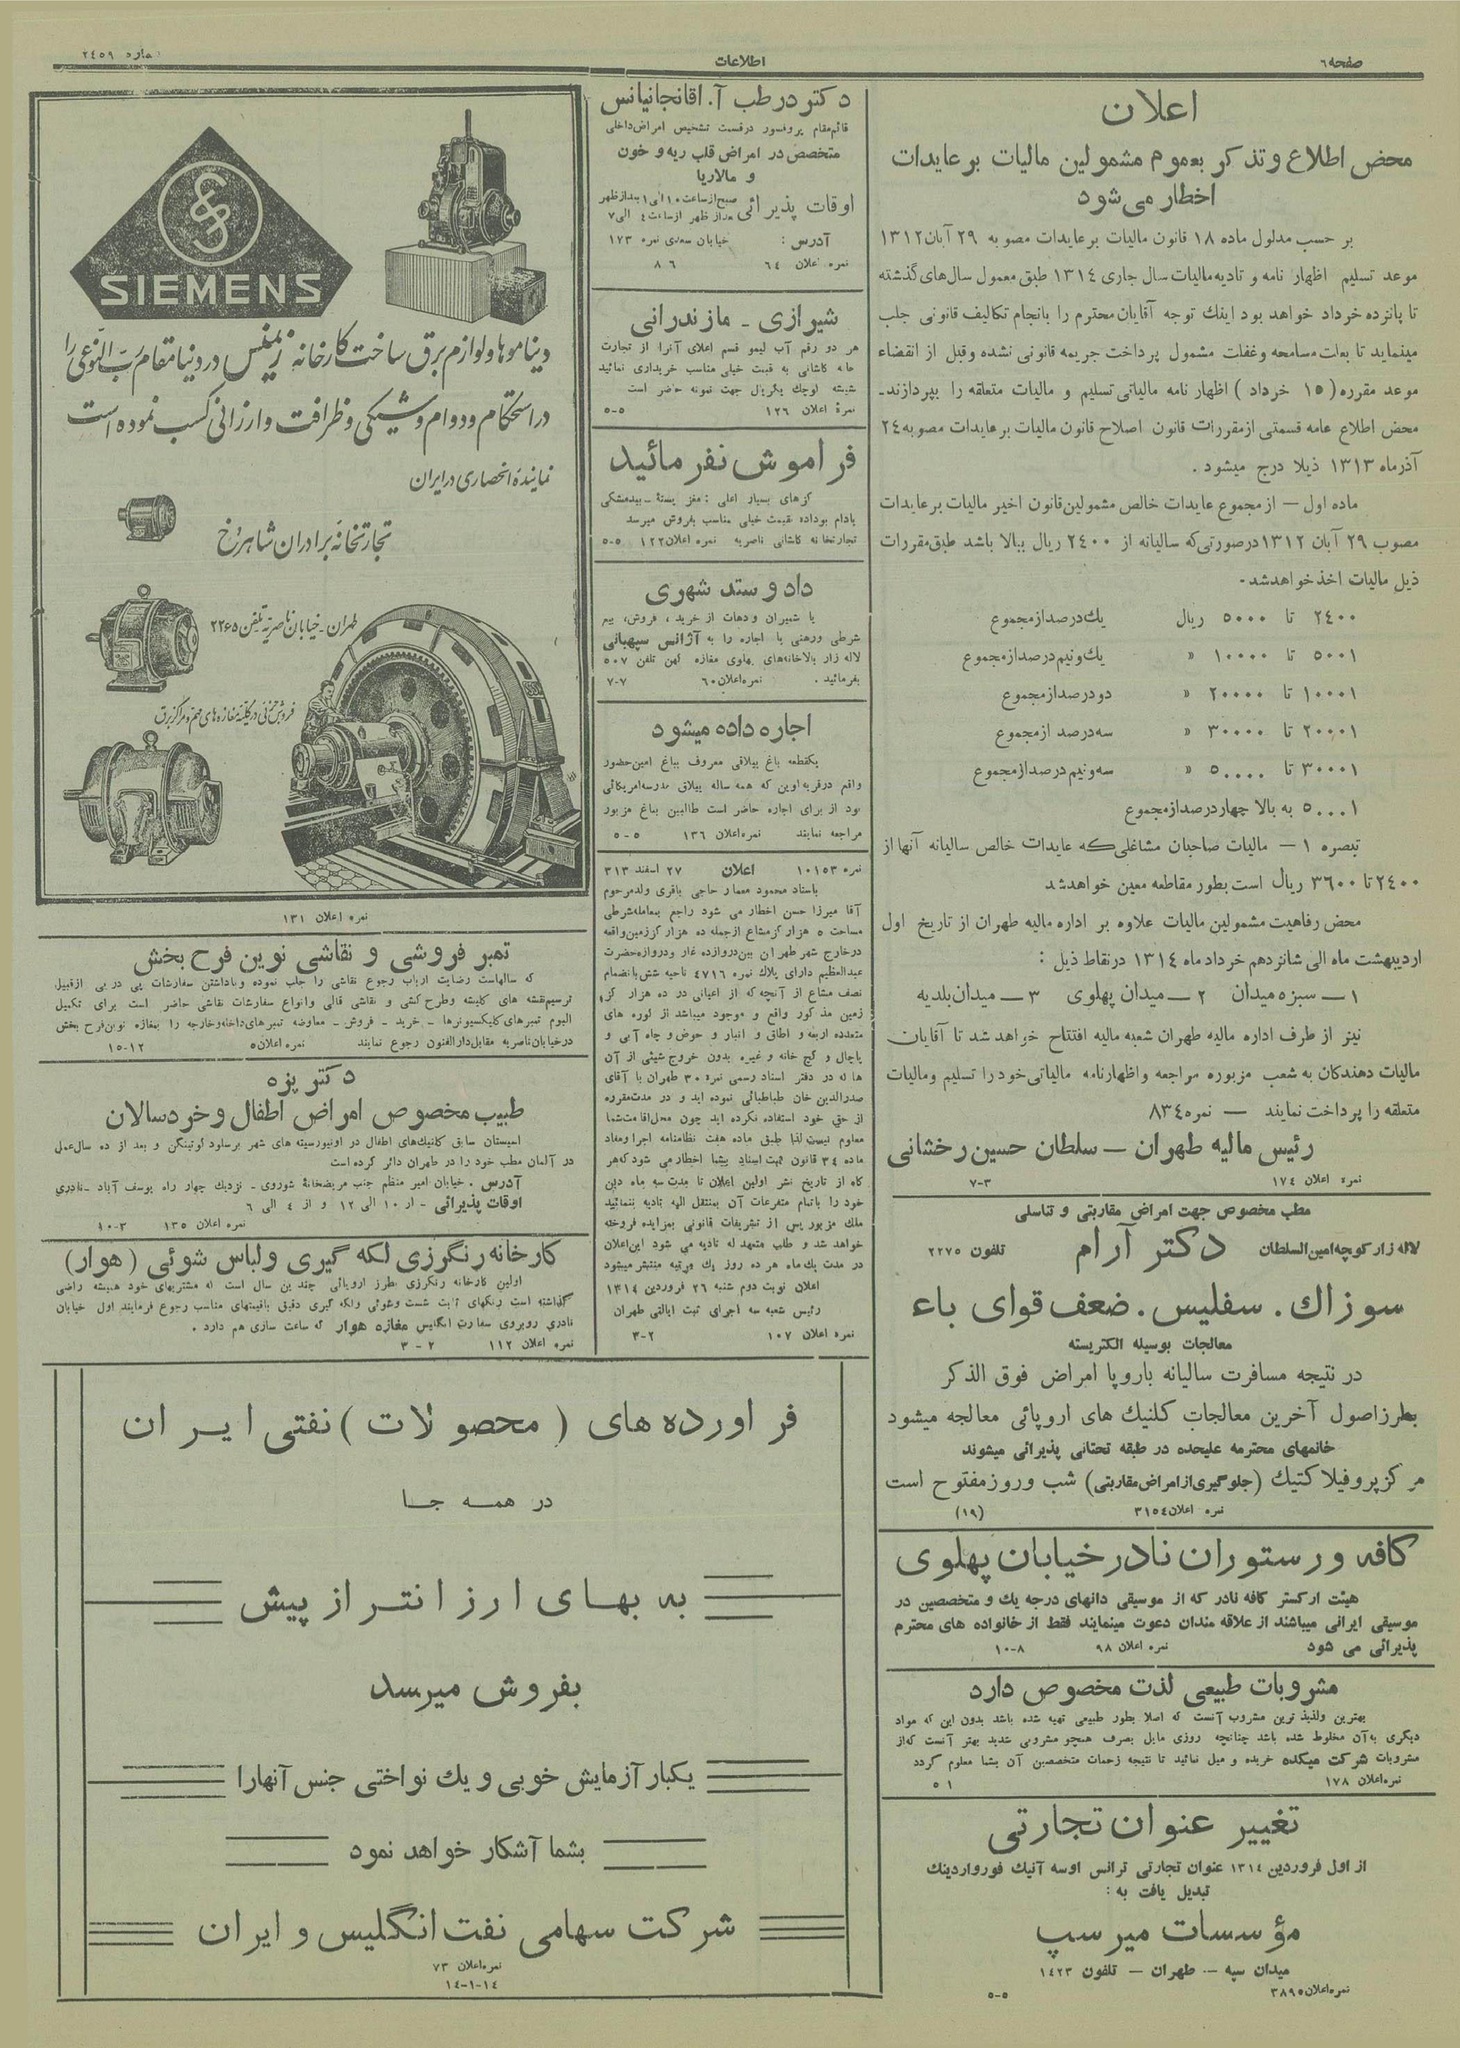 صفحه ٦
اطلاعات
شماره ٢٤٥٩
اعلان
محض اطلاع و تذکر بعموم مشمولین مالیات بر عایدات
اخطار می شود
بر حسب مدلول ماده ١٨ قانون مالیات بر عایدات مصوبه ٢٩ آبان ١٣١٢
موعد تسلیم اظهار نامه و تادیه مالیات سال جاری ١٣١٤ طبق معمول سال های گذشته
تا پانزده خرداد خواهد بود اینك توجه آقایان محترم را بانجام تکالیف قانونی جلب
مینماید تا بعلت مسامحه و غفلت مشمول پرداخت جریمه قانونی نشده و قبل از انقضاء
موعد مقرره (١٥ خرداد) اظهار نامه مالیاتی تسلیم و مالیات متعلقه را بپردازند-
محض اطلاع عامه قسمتی از مقررات قانون اصلاح قانون مالیات بر عایدات مصوبه ٢٤
آذر ماه ١٣١٣ ذیلا درج میشود .
ماده اول — از مجموع عایدات خالص مشمولین قانون اخیر مالیات بر عایدات
مصوب ٢٩ آبان ١٣١٢ درصورتی که سالیانه از ٢٤٠٠ ریال ببالا باشد طبق مقررات
ذیل مالیات اخذ خواهد شد-
٢٤٠٠ تا ٥٠٠٠ ریال یك درصد از مجموع
٥٠٠١ تا ١٠٠٠٠ » یك و نیم درصد از مجموع
١٠٠٠١ تا ٢٠٠٠٠ » دو درصد از مجموع
٢٠٠٠١ تا ٣٠٠٠٠ » سه درصد از مجموع
٣٠٠٠١ تا ٥٠٠٠٠ » سه و نیم درصد از مجموع
٥٠٠٠١ به بالا چهار درصد از مجموع
تبصره ١ — مالیات صاحبان مشاغلی که عایدات خالص سالیانه آنها از
٢٤٠٠ تا ٣٦٠٠ ریال است بطور مقاطعه معین خواهد شد
محض رفاهیت مشمولین مالیات علاوه بر اداره مالیه طهران از تاریخ اول
اردیبهشت ماه الی شانزدهم خرداد ماه ١٣١٤ در نقاط ذیل :
١ — سبزه میدان ٢ — میدان پهلوی ٣ — میدان بلدیه
نیز از طرف اداره مالیه طهران شعبه مالیه افتتاح خواهد شد تا آقایان
مالیات دهندکان به شعب مزبوره مراجعه و اظهارنامه مالیاتی خود را تسلیم و مالیات
متعلقه را پرداخت نمایند — نمره ٨٣٤
رئیس مالیه طهران — سلطان حسین رخشانی
نمره اعلان ١٧٤ ٧-٣
مطب مخصوص جهت امراض مقاربتی و تناسلی
لاله زار کوچه امین السلطان دکتر آرام تلفون ٢٢٧٥
سوزاك . سفلیس . ضعف قوای باء
معالجات بوسیله الکتریسته
در نتیجه مسافرت سالیانه باروپا امراض فوق الذکر
بطرز اصول آخرین معالجات کلنیك های اروپائی معالجه میشود
خانمهای محترمه علیحده در طبقه تحتانی پذیرائی میشوند
مرکز پروفیلاکتیك (جلوگیری از امراض مقاربتی) شب و روز مفتوح است
نمره اعلان ٣١٥٤ (١٩)
کافه و رستوران نادر خیابان پهلوی
هیئت ارکستر کافه نادر که از موسیقی دانهای درجه یك و متخصصین در
موسیقی ایرانی میباشند از علاقه مندان دعوت مینمایند فقط از خانواده های محترم
پذیرائی می شود نمره اعلان ٩٨ ١٠-٨
مشروبات طبیعی لذت مخصوص دارد
بهترین ولذیذ ترین مشروب آنست که اصلا بطور طبیعی تهیه شده باشد بدون این که مواد
دیگری به آن مخلوط شده باشد چنانچه روزی مایل بصرف همچو مشروبی شدید بهتر آنست که از
مشروبات شرکت میکده خریده و میل نمائید تا نتیجه زحمات متخصصین آن بشما معلوم گردد
نمره اعلان ١٧٨ ٥ ١
تغییر عنوان تجارتی
از اول فروردین ١٣١٤ عنوان تجارتی ترانس اوسه آنیك فورواردینك
تبدیل یافت به :
مؤسسات میر سپ
میدان سپه — طهران — تلفون ١٤٢٣
نمره اعلان ٣٨٩٥ ٥-٥
دکتر در طب آ. آقانجانیانس
قائم مقام پروفسور در قسمت تشخیص امراض داخلی
متخصص در امراض قلب ریه و خون
و مالاریا
اوقات پذیرائی صبح از ساعت ١٠ الی ١ بعد از ظهر
بعد از ظهر از ساعت ٤ الی ٧
آدرس : خیابان سعدی نمره ١٧٣
نمره اعلان ٦٤ ٨ ٦
شیرازی - مازندرانی
هر دو رقم آب لیمو قسم اعلای آنرا از تجارت
خانه کاشانی به قیمت خیلی مناسب خریداری نمائید
شیشه کوچك یکریال جهت نمونه حاضر است
نمره اعلان ١٢٦ ٥-٥
فراموش نفرمائید
گزهای بسیار اعلی : مغز پسته - بیدمشکی
بادام بوداده قیمت خیلی مناسب بفروش میرسد
تجارتخانه کاشانی ناصریه نمره اعلان ١٢٢ ٥-٥
داد و ستد شهری
یا شمیران و دهات از خرید ، فروش، بیع
شرطی و رهنی یا اجاره را به آژانس سپهبانی
لاله زار بالاخانه های پهلوی مغازه کهن تلفن ٥٠٧
بفرمائید . نمره اعلان ٦٠ ٧-٧
اجاره داده میشود
یکقطعه باغ ییلاقی معروف بباغ امین حضور
واقع در قریه اوین که همه ساله ییلاق مدرسه امریکائی
بود از برای اجاره حاضر است طالبین بباغ مزبور
مراجعه نمایند نمره اعلان ١٣٦ ٥-٥
نمره ١٠١٥٣ اعلان ٢٧ اسفند ٣١٣
باستاد محمود معمار حاجی باقری ولد مرحوم
آقا میرزا حسن اخطار می شود راجع بمعامله شرطی
مساحت ٥ هزار گز مشاع از جمله ده هزار گز زمین واقعه
در خارج شهر طهران بین دروازه غار و دروازه حضرت
عبدالعظیم دارای پلاك نمره ٤٧١٦ ناحیه شش بانضمام
نصف مشاع از آنچه که از اعیانی در ده هزار گز
زمین مذکور واقع و موجود میباشد از کوره های
متعدده اربعه و اطاق و انبار و حوض و چاه آبی و
یاچال و گچ خانه و غیره بدون خروج شیئی از آن
ها که در دفتر اسناد رسمی نمره ٣٠ طهران با آقای
صدرالدین خان طباطبائی نموده اید و در مدت مقرره
از حق خود استفاده نکرده اید چون محل اقامت شما
معلوم نیست لذا طبق ماده هفت نظامنامه اجرا و مفاد
ماده ٣٤ قانون ثبت اسناد بشما اخطار می شود که هر
گاه از تاریخ نشر اولین اعلان تا مدت سه ماه دین
خود را باتمام متفرعات آن بمنتقل الیه تادیه ننمائید
ملك مزبور پس از تشریفات قانونی بمزایده فروخته
خواهد شد و طلب متعهد له تادیه می شود این اعلان
در مدت یك ماه هر ده روز یك مرتبه منتشر میشود
اعلان نوبت دوم شنبه ٢٦ فروردین ١٣١٤
رئیس شعبه سه اجرای ثبت ایالتی طهران
نمره اعلان ١٠٧ ٣-٢
SIEMENS
دینامو ها و لوازم برق ساخت کارخانه زیمنس در دنیا مقام رب النوعی را
در استحکام و دوام و شیکی و ظرافت و ارزانی کسب نموده است
نماینده انحصاری در ایران
تجارتخانه برادران شاهرخ
طهران - خیابان ناصریه تلفن ٢٢٦٥
فروش جزئی در کلیه مغازه های مهم و مراکز برق
نمره اعلان ١٣١
تمبر فروشی و نقاشی نوین فرح بخش
که سالهاست رضایت ارباب رجوع نقاشی را جلب نموده و باداشتن سفارشات پی در پی ازقبیل
ترسیم نقشه های کلیشه و طرح کشی و نقاشی قالی و انواع سفارشات نقاشی حاضر است برای تکمیل
البوم تمبرهای کلیکسیونرها - خرید - فروش - معاوضه تمبرهای داخله و خارجه را بمغازه نوین فرح بخش
در خیابان ناصریه مقابل دارالفنون رجوع نمایند نمره اعلان ٥ ١٥-١٢
دکتر یزه
طبیب مخصوص امراض اطفال و خردسالان
اسیستان سابق کلنیك های اطفال در اونیورسیته های شهر برسلو و گوتینگن و بعد از ده سال عمل
در آلمان مطب خود را در طهران دائر کرده است
آدرس . خیابان امیر منظم جنب مریضخانه شوروی - نزدیك چهار راه یوسف آباد - نادری
اوقات پذیرائی - از ١٠ الی ١٢ و از ٤ الی ٦
نمره اعلان ١٣٥ ١٠-٣
کارخانه رنگرزی لکه گیری و لباس شوئی (هوار)
اولین کارخانه رنگرزی بطرز اروپائی چندین سال است که مشتریهای خود همیشه راضی
گذاشته است رنگهای ثابت شست وشوئی ولکه گیری دقیق باقیمتهای مناسب رجوع فرمایند اول خیابان
نادری روبروی سفارت انگلیس مغازه هوار که ساعت سازی هم دارد .
نمره اعلان ١١٢ ٣-٢
فراورده های (محصولات) نفتی ایران
در همه جا
به بهای ارزانتر از پیش
بفروش میرسد
یکبار آزمایش خوبی و یك نواختی جنس آنهارا
بشما آشکار خواهد نمود
شرکت سهامی نفت انگلیس و ایران
نمره اعلان ٧٣
١٤-١-١٤